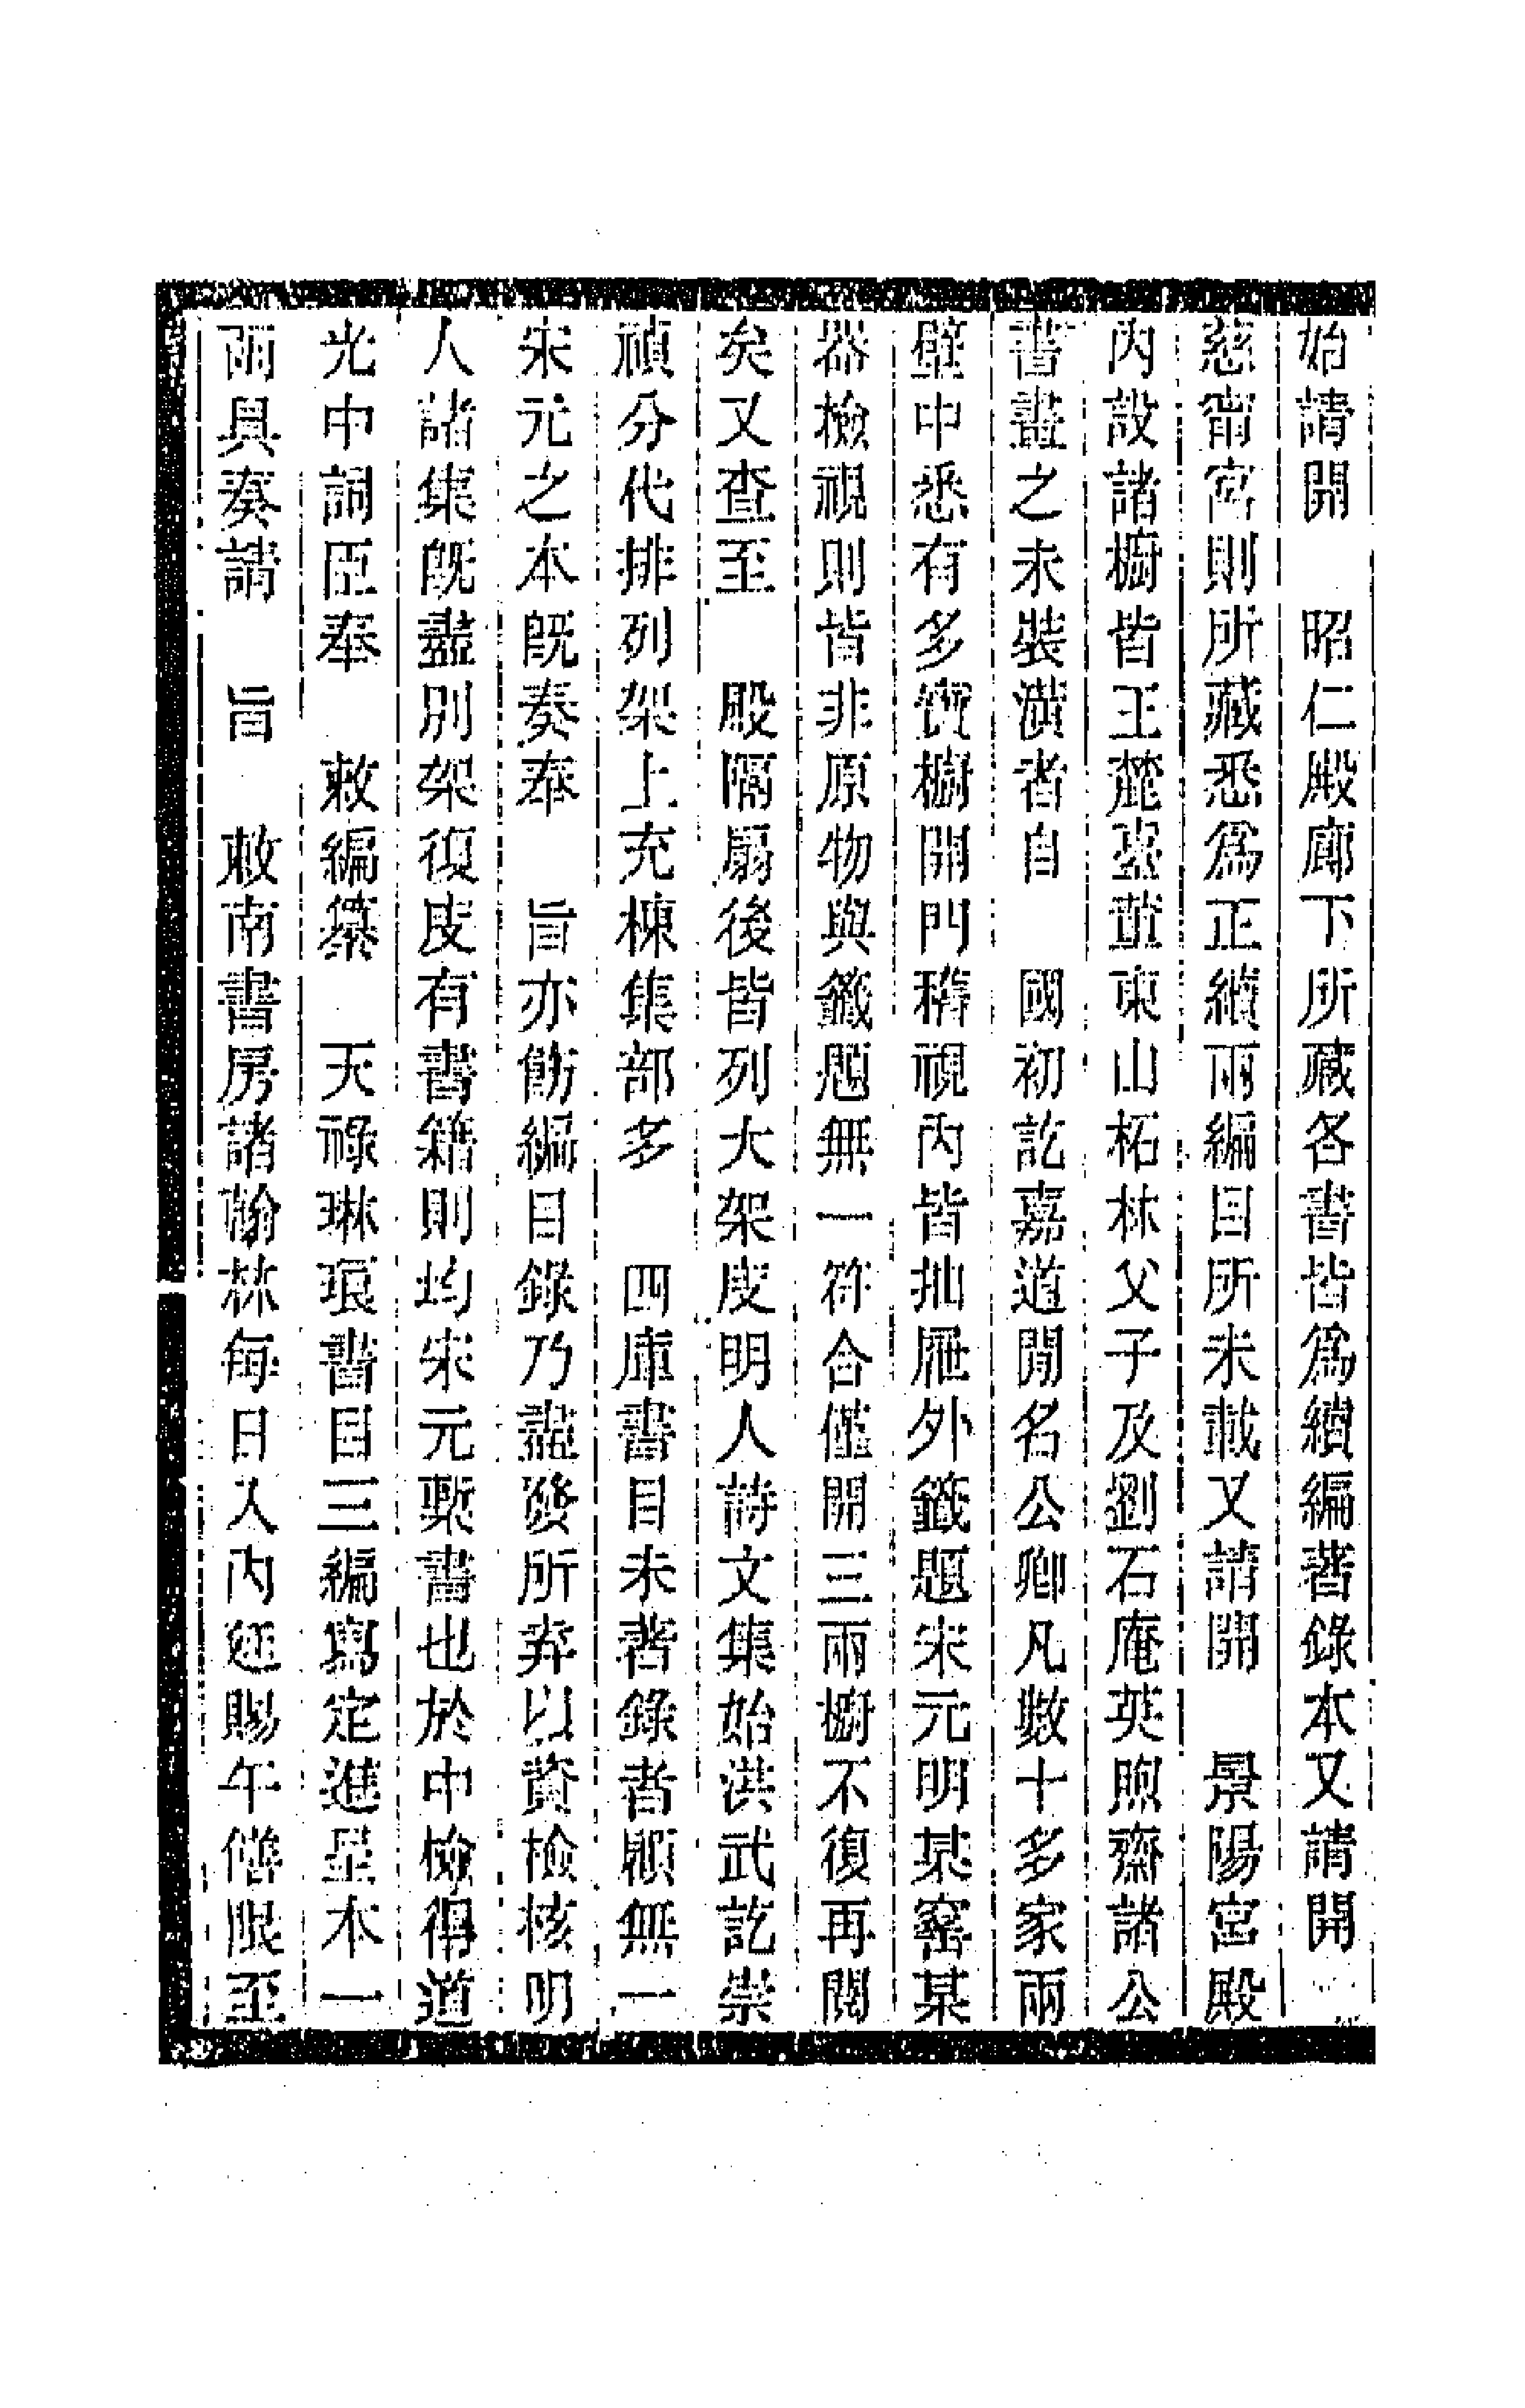 始請開　昭仁殿廊下所藏各書皆爲續編著錄本又請開
慈甯宮則所藏悉爲正續兩編目所未載又請開　景陽宮殿
內設諸櫥皆王麓臺董東山柘林父子及劉石庵英煦齋諸公
書畫之未裝潢者自　國初訖嘉道閒名公卿凡數十多家兩
壁中悉有多寶櫥開門稽視內皆抽屜外籤題宋元明某窰某
器檢視則皆非原物與籤題無一符合僅開三兩櫥不復再閱
矣又查至　殿隔扇後皆列大架庋明人詩文集始洪武訖崇
禎分代排列架上充棟集部多　四庫書目未著錄者顧無一
宋元之本既奏奉　旨亦飭編目錄乃盡發所弆以資檢核明
人諸集既盡別架復庋有書籍則均宋元槧書也於中檢得道
光中詞臣奉　敕編纂　天祿琳琅書目三編寫定進呈本一
函具奏請　旨　敕南書房諸翰林每日入內廷賜午饍限至